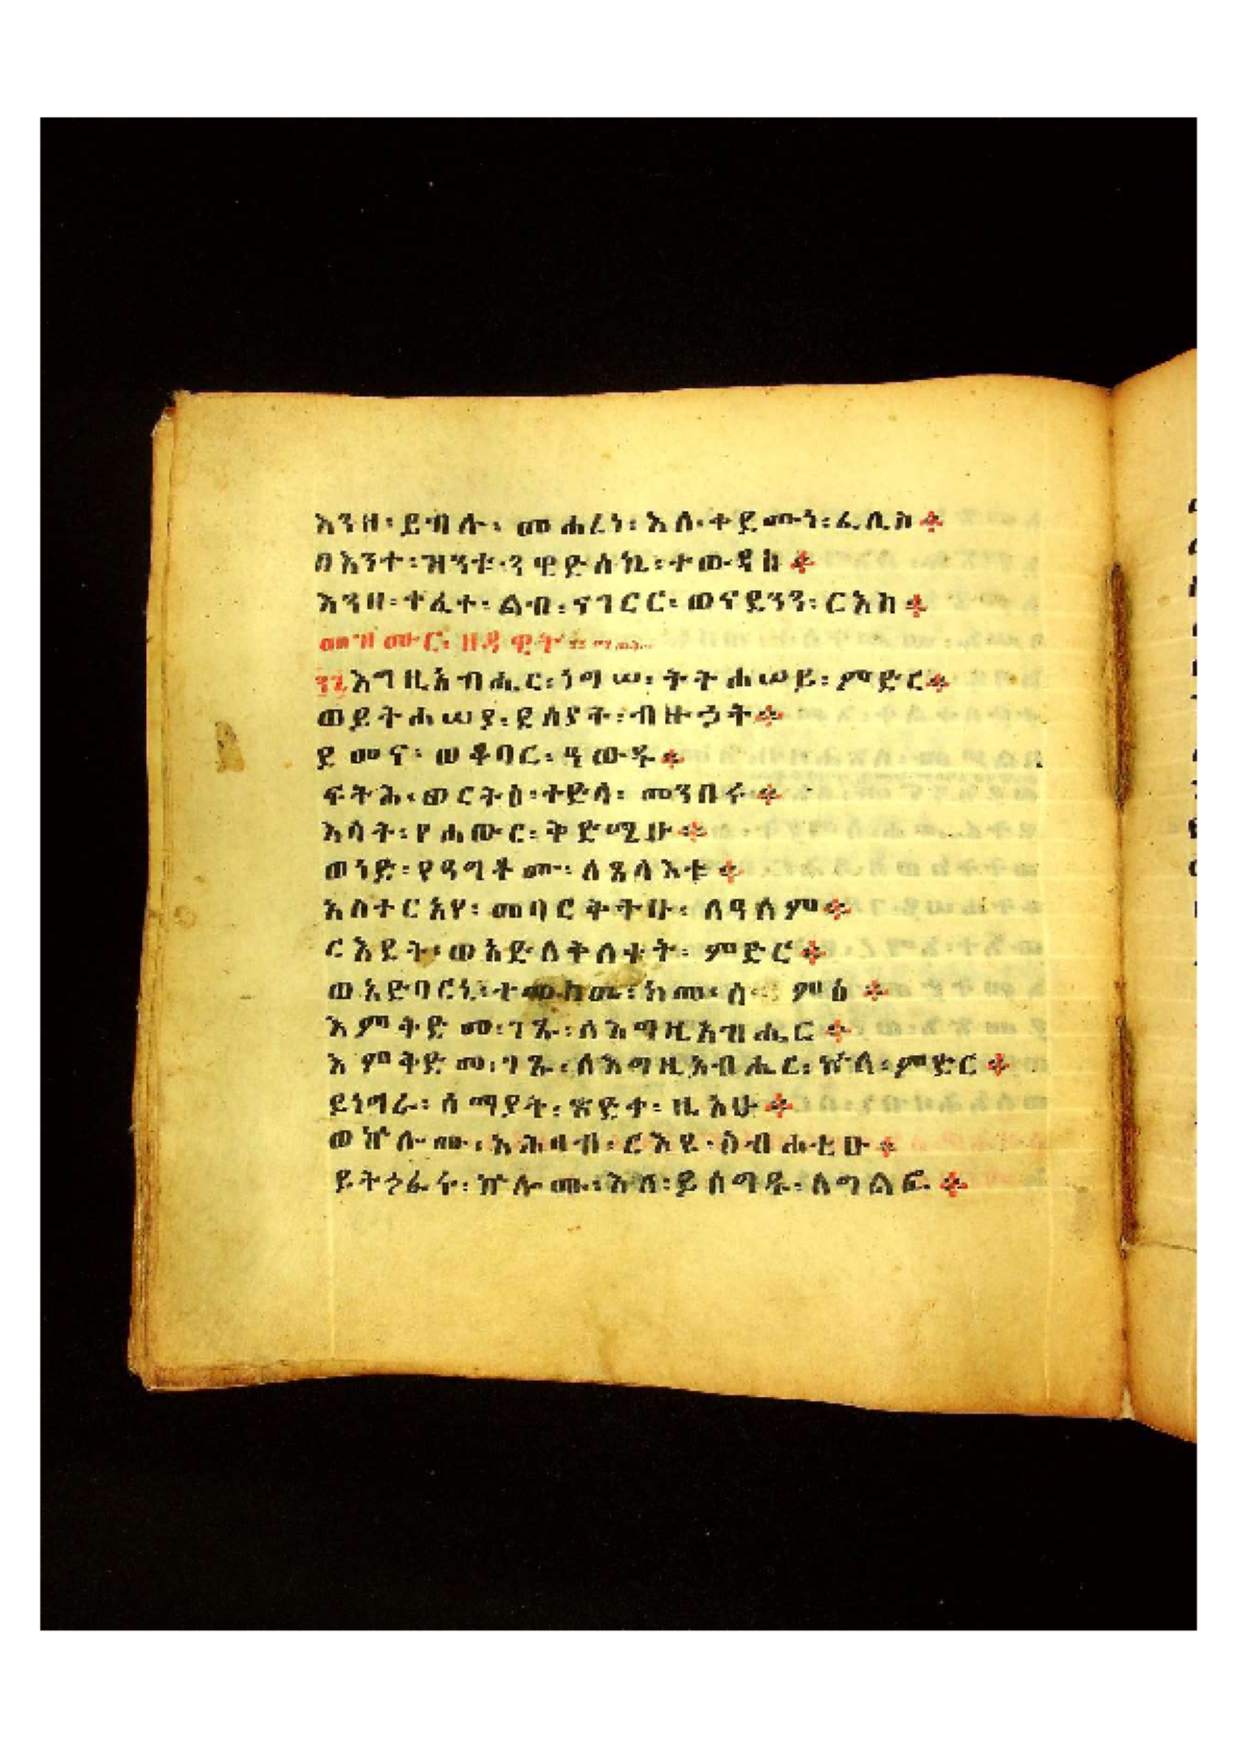 እንዘ፡ ይብሉ፡ መሐረነ፡ እለ፡ ቀደሙነ፡ ፈሊስ።
በእንተ፡ ዝንቱ፡
እንዘ፡ ተፈተ፡ ልብ፡ ናገርር፡ ወናደንን፡ ርእስ።
መዝሙር፡ ዘዳዊት፡
፺፮ እግዚአብሔር፡ ነግሠ፡ ትትሐሠይ፡ ምድር።
ወይትሐሠያ፡ ደሰያት፡ ብዙኃት።
ደመና፡ ወቆባር፡ ዓውዱ።
ፍትሕ፡ ወርትዕ፡ ተድላ፡ መንበሩ።
እሳት፡ የሐውር፡ ቅድሜሁ።
ወነድ፡ የዳግቶሙ፡ ለጸላእቱ።
አስተርአየ፡ መባርቅትሁ፡ ለዓለም።
ርእየት፡ ወአድለቅለቀት፡ ምድር።
ወአድባርኒ፡ ተመስወ፡ ከመ፡ ሰምዕ።
እምቅድመ፡ ገጹ፡ ለእግዚአብሔር።
እምቅድመ፡ ገጹ፡ ለእግዚአብሔር፡ ኵላ፡ ምድር።
ይነግራ፡ ሰማያት፡ ጽድቀ፡ ዚአሁ።
ወኵሉሙ፡ አሕዛብ፡ ርእዩ፡ ስብሐቲሁ።
ይትኃፈሩ፡ ኵሎሙ፡ እለ፡ ይሰግዱ፡ ለግልፎ።